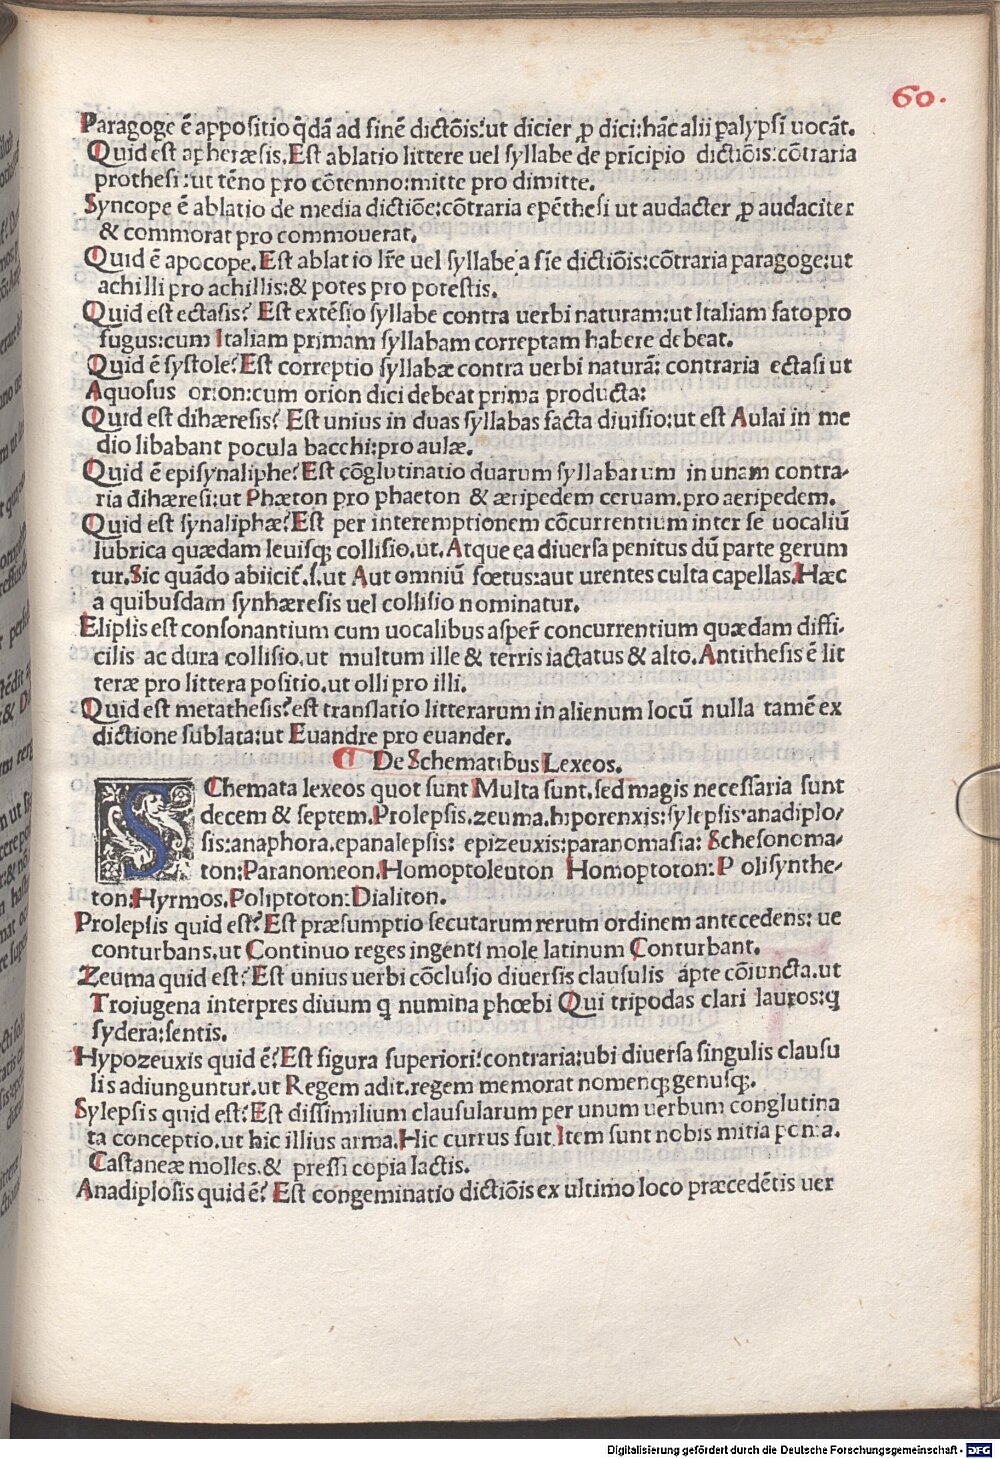 60.
Paragoge ē appositio q̄dā ad finē dictōis: ut dicier ꝓ dici: hāc alii ꝑalypsī uocāt.
Quid est apheræsis. Est ablatio littere uel syllabe de prīcipio dictiōis: cōtraria
prothesi: ut tēno pro cōtemno: mitte pro dimitte.
Syncope ē ablatio de media dictiōe: cōtraria epēthesi ut audacter ꝓ audaciter
& commorat pro commouerat.
Quid ē apocope. Est ablatio lr̄e uel syllabe a fīe dictiōis: cōtraria paragoge: ut
achilli pro achillis: & potes pro potestis.
Quid est ectasis? Est extēsio syllabe contra uerbi naturam: ut Italiam fato pro
fugus: cum Italiam primam syllabam correptam habere debeat.
Quid ē systole? Est correptio syllabæ contra uerbi naturā: contraria ectasi ut
Aquosus orion: cum orion dici debeat prima producta:
Quid est dihæresis? Est unius in duas syllabas facta diuisio: ut est Aulai in me
dio libabant pocula bacchi: pro aulæ.
Quid ē episynaliphe? Est cōglutinatio duarum syllabarum in unam contra-
ria dihæresi: ut Phæton pro phaeton & æripedem ceruam. pro aeripedem.
Quid est synaliphæ? Est per interemptionem cōcurrentium inter se uocaliū
lubrica quædam leuisqꝫ collisio. ut. Atque ea diuersa penitus dū parte gerun
tur. Sic quādo abiicit̄. s. ut Aut omniū fœtus: aut urentes culta capellas. Hæc
a quibusdam synhæresis uel collisio nominatur.
Eliplis est consonantium cum uocalibus asper̄ concurrentium quædam diffi-
cilis ac dura collisio. ut multum ille & terris iactatus & alto. Antithesis ē lit
teræ pro littera positio. ut olli pro illi.
Quid est metathesis? est translatio litterarum in alienum locū nulla tamē ex
dictione sublata: ut Euandre pro euander.
¶ De Schematibus Lexeos.
SChemata lexeos quot sunt Multa sunt, sed magis necessaria sunt
decem & septem. Prolepsis. zeuma. hiporenxis: sylepsis. anadiplo-
sis: anaphora. epanalepsis: epizeuxis: paranomasia: Schesonoma-
ton: Paranomeon. Homoptoleuton Homoptoton: Polisynthe-
ton: Hyrmos. Poliptoton: Dialiton.
Prolepsis quid est? Est præsumptio secutarum rerum ordinem antecedens: ue
conturbans. ut Continuo reges ingenti mole latinum Conturbant.
Zeuma quid est? Est unius uerbi cōclusio diuersis clausulis apte cōiuncta. ut
Troiugena interpres diuum q numina phœbi Qui tripodas clari lauros: q
sydera: sentis.
Hypozeuxis quid ē? Est figura superiori: contraria: ubi diuersa singulis clausu
lis adiunguntur. ut Regem adit. regem memorat nomenqꝫ genusqꝫ.
Sylepsis quid est? Est dissimilium clausularum per unum uerbum conglutina
ta conceptio. ut hic illius arma. Hic currus fuit. Item sunt nobis mitia poma.
Castaneæ molles. & pressi copia lactis.
Anadiplosis quid ē? Est congeminatio dictiōis ex ultimo loco præcedētis uer
Digitalisierung gefördert durch die Deutsche Forschungsgemeinschaft - DFG